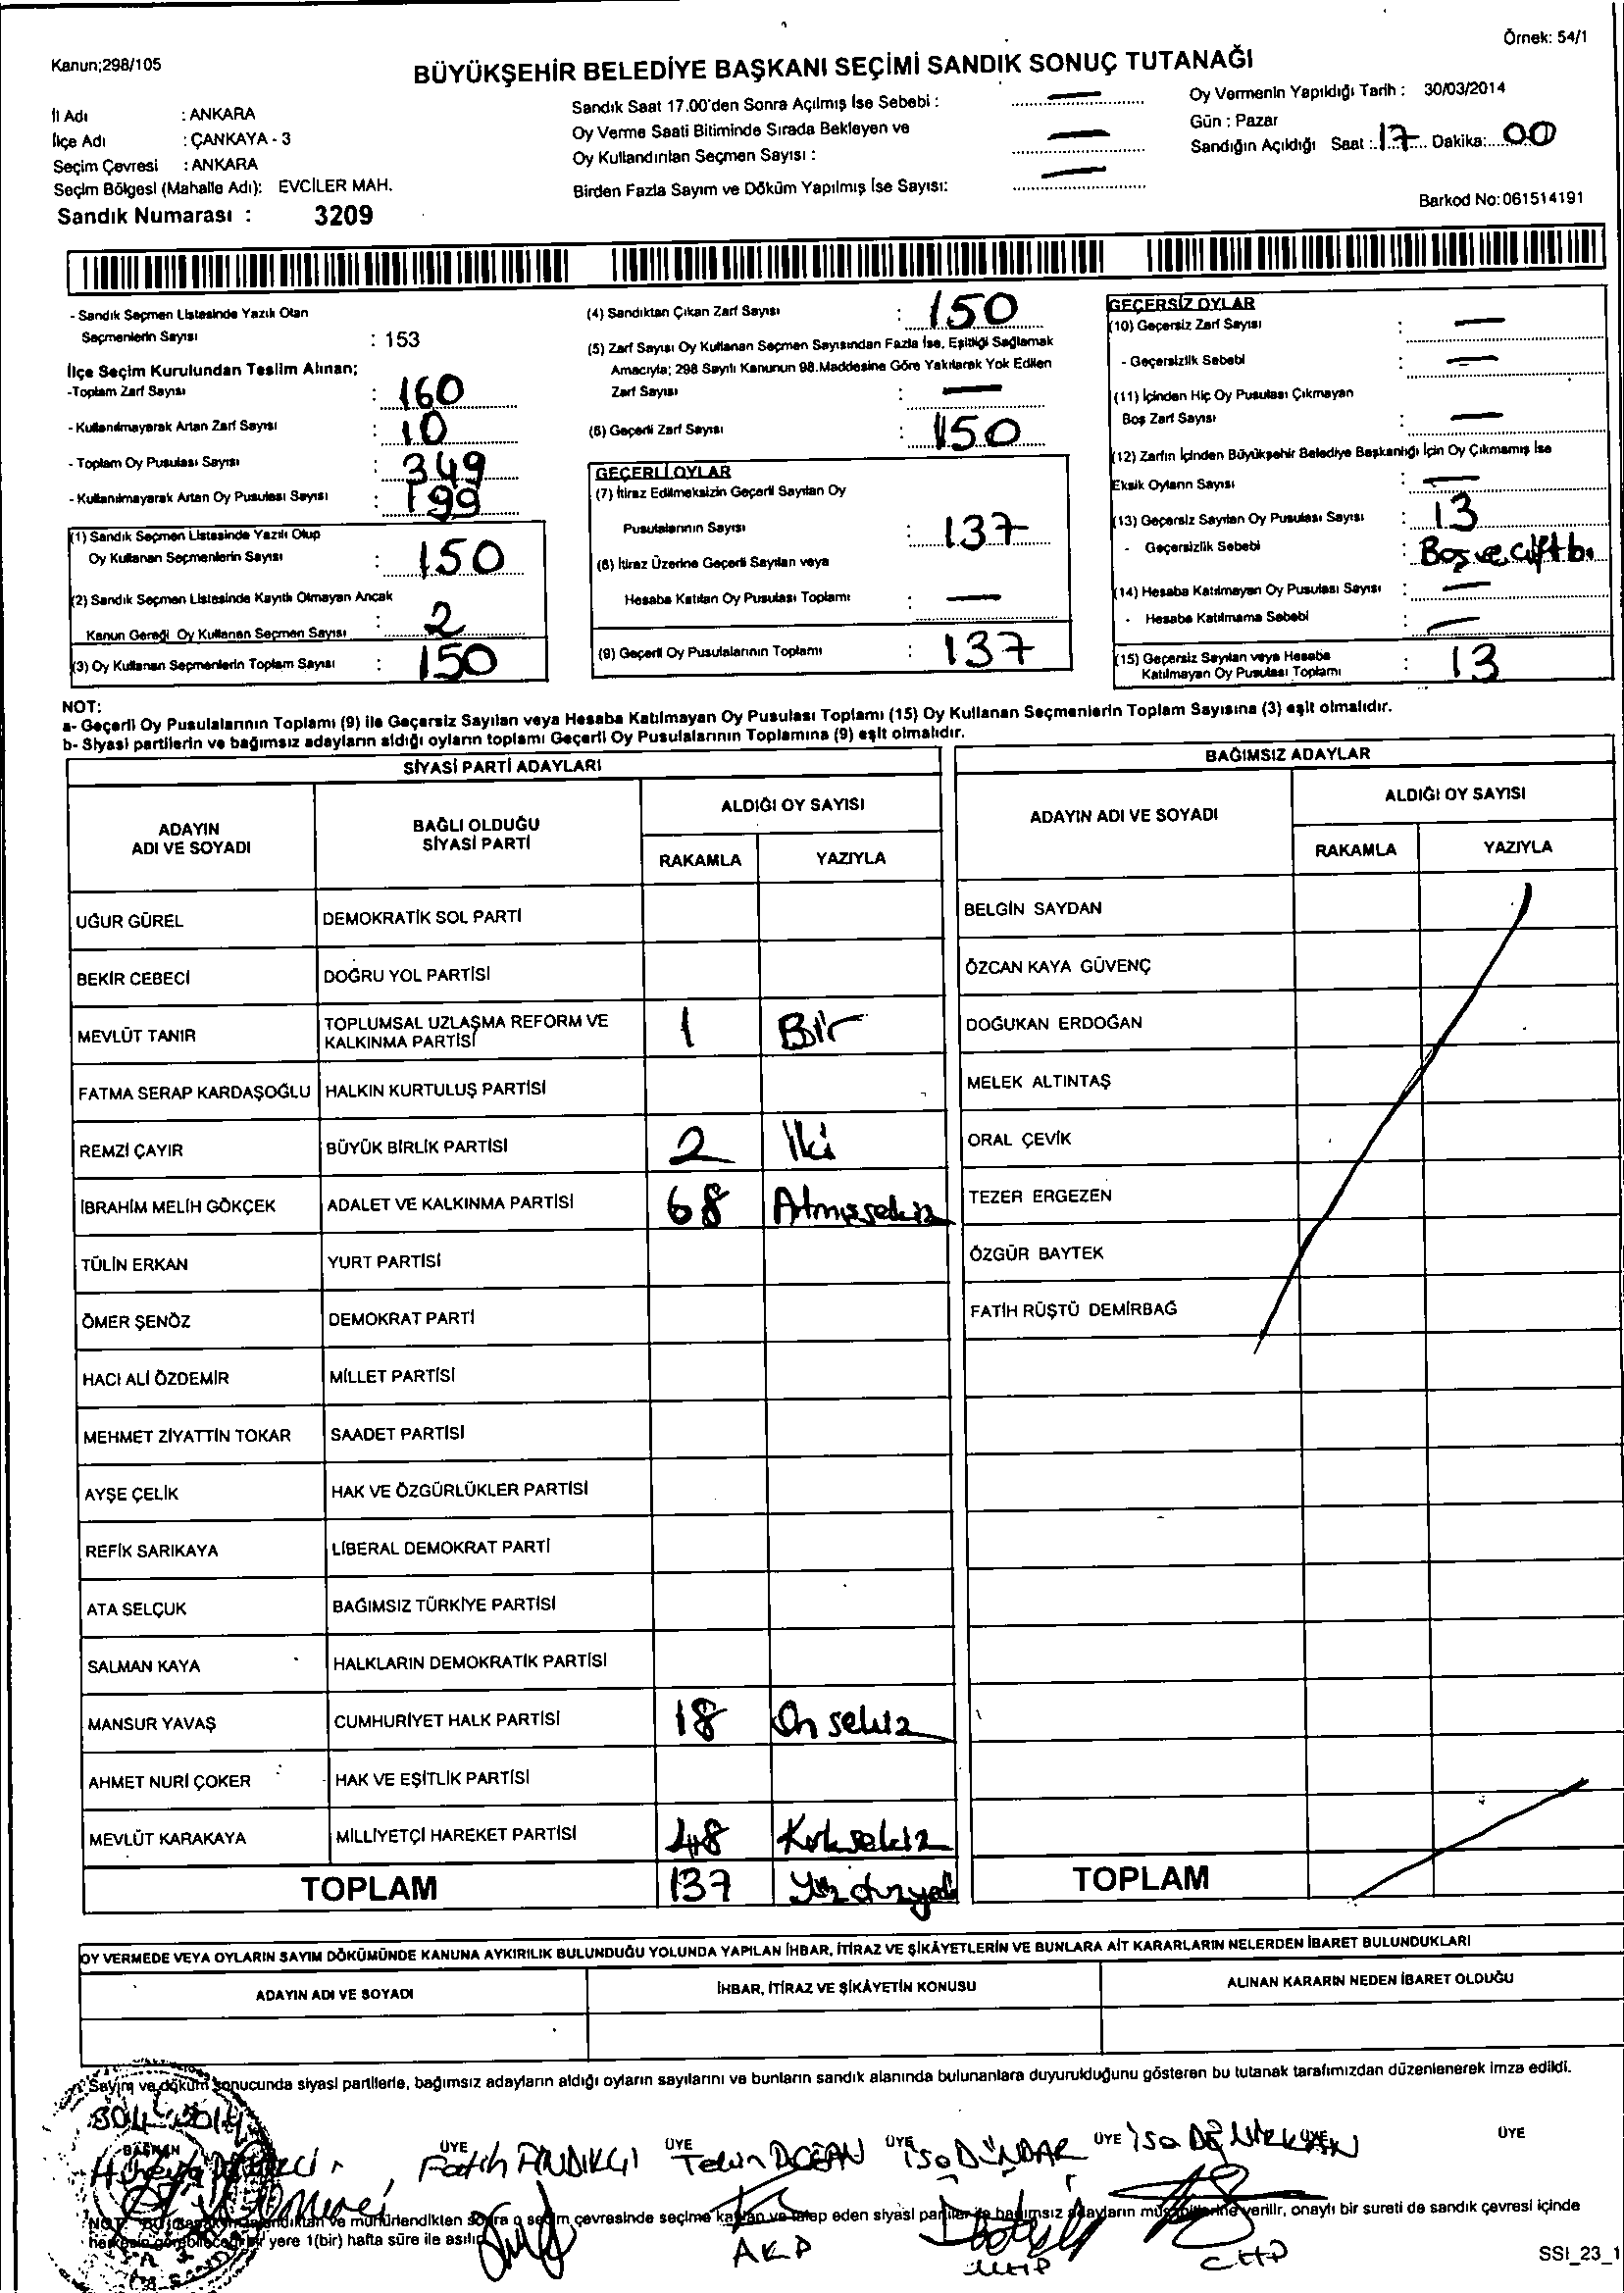 Örnek: 54/1
Kanun;298/105
BÜYÜKŞEHİR BELEDİYE BAŞKANI SEÇİMİ SANDIK SONUÇ TUTANAĞI
İl Adı : ANKARA
İlçe Adı : ÇANKAYA - 3
Seçim Çevresi : ANKARA
Seçim Bölgesi (Mahalle Adı): EVCİLER MAH.
Sandık Numarası : 3209
Sandık Saat 17.00'den Sonra Açılmış İse Sebebi : —
Oy Verme Saati Bitiminde Sırada Bekleyen ve
Oy Kullandırılan Seçmen Sayısı : —
Birden Fazla Sayım ve Döküm Yapılmış İse Sayısı: —
Oy Vermenin Yapıldığı Tarih : 30/03/2014
Gün : Pazar
Sandığın Açıldığı Saat : 17 Dakika: 00
Barkod No:061514191
- Sandık Seçmen Listesinde Yazılı Olan
Seçmenlerin Sayısı : 153
İlçe Seçim Kurulundan Teslim Alınan;
-Toplam Zarf Sayısı : 160
- Kullanılmayarak Artan Zarf Sayısı : 10
- Toplam Oy Pusulası Sayısı : 349
- Kullanılmayarak Artan Oy Pusulası Sayısı : 199
(1) Sandık Seçmen Listesinde Yazılı Olup
Oy Kullanan Seçmenlerin Sayısı : 150
(2) Sandık Seçmen Listesinde Kayıtlı Olmayan Ancak
Kanun Gereği Oy Kullanan Seçmen Sayısı : 2
(3) Oy Kullanan Seçmenlerin Toplam Sayısı : 150
(4) Sandıktan Çıkan Zarf Sayısı : 150
(5) Zarf Sayısı Oy Kullanan Seçmen Sayısından Fazla İse, Eşitliği Sağlamak
Amacıyla; 298 Sayılı Kanunun 98.Maddesine Göre Yakılarak Yok Edilen
Zarf Sayısı : —
(6) Geçerli Zarf Sayısı : 150
GEÇERLİ OYLAR
(7) İtiraz Edilmeksizin Geçerli Sayılan Oy
Pusulalarının Sayısı : 137
(8) İtiraz Üzerine Geçerli Sayılan veya
Hesaba Katılan Oy Pusulası Toplamı : —
(9) Geçerli Oy Pusulalarının Toplamı : 137
GEÇERSİZ OYLAR
(10) Geçersiz Zarf Sayısı : —
- Geçersizlik Sebebi : —
(11) İçinden Hiç Oy Pusulası Çıkmayan
Boş Zarf Sayısı : —
(12) Zarfın İçinden Büyükşehir Belediye Başkanlığı İçin Oy Çıkmamış İse
Eksik Oyların Sayısı : —
(13) Geçersiz Sayılan Oy Pusulası Sayısı : 13
- Geçersizlik Sebebi : Boş ve çift b.
(14) Hesaba Katılmayan Oy Pusulası Sayısı : —
- Hesaba Katılmama Sebebi : —
(15) Geçersiz Sayılan veya Hesaba
Katılmayan Oy Pusulası Toplamı : 13
NOT:
a- Geçerli Oy Pusulalarının Toplamı (9) ile Geçersiz Sayılan veya Hesaba Katılmayan Oy Pusulası Toplamı (15) Oy Kullanan Seçmenlerin Toplam Sayısına (3) eşit olmalıdır.
b- Siyasi partilerin ve bağımsız adayların aldığı oyların toplamı Geçerli Oy Pusulalarının Toplamına (9) eşit olmalıdır.
SİYASİ PARTİ ADAYLARI
ADAYIN ADI VE SOYADI
BAĞLI OLDUĞU SİYASİ PARTİ
ALDIĞI OY SAYISI
RAKAMLA YAZIYLA
UĞUR GÜREL DEMOKRATİK SOL PARTİ
BEKİR CEBECİ DOĞRU YOL PARTİSİ
MEVLÜT TANIR TOPLUMSAL UZLAŞMA REFORM VE KALKINMA PARTİSİ 1 Bir
FATMA SERAP KARDAŞOĞLU HALKIN KURTULUŞ PARTİSİ
REMZİ ÇAYIR BÜYÜK BİRLİK PARTİSİ 2 İki
İBRAHİM MELİH GÖKÇEK ADALET VE KALKINMA PARTİSİ 68 Atmışsekiz
TÜLİN ERKAN YURT PARTİSİ
ÖMER ŞENÖZ DEMOKRAT PARTİ
HACI ALİ ÖZDEMİR MİLLET PARTİSİ
MEHMET ZİYATTİN TOKAR SAADET PARTİSİ
AYŞE ÇELİK HAK VE ÖZGÜRLÜKLER PARTİSİ
REFİK SARIKAYA LİBERAL DEMOKRAT PARTİ
ATA SELÇUK BAĞIMSIZ TÜRKİYE PARTİSİ
SALMAN KAYA HALKLARIN DEMOKRATİK PARTİSİ
MANSUR YAVAŞ CUMHURİYET HALK PARTİSİ 18 On sekiz
AHMET NURİ ÇOKER HAK VE EŞİTLİK PARTİSİ
MEVLÜT KARAKAYA MİLLİYETÇİ HAREKET PARTİSİ 48 Kırksekiz
TOPLAM 137
BAĞIMSIZ ADAYLAR
ADAYIN ADI VE SOYADI
ALDIĞI OY SAYISI
RAKAMLA YAZIYLA
BELGİN SAYDAN
ÖZCAN KAYA GÜVENÇ
DOĞUKAN ERDOĞAN
MELEK ALTINTAŞ
ORAL ÇEVİK
TEZER ERGEZEN
ÖZGÜR BAYTEK
FATİH RÜŞTÜ DEMİRBAĞ
TOPLAM
OY VERMEDE VEYA OYLARIN SAYIM DÖKÜMÜNDE KANUNA AYKIRILIK BULUNDUĞU YOLUNDA YAPILAN İHBAR, İTİRAZ VE ŞİKÂYETLERİN VE BUNLARA AİT KARARLARIN NELERDEN İBARET BULUNDUKLARI
ADAYIN ADI VE SOYADI
İHBAR, İTİRAZ VE ŞİKÂYETİN KONUSU
ALINAN KARARIN NEDEN İBARET OLDUĞU
Sayım ve döküm sonucunda siyasi partilerle, bağımsız adayların aldığı oyların sayılarını ve bunların sandık alanında bulunanlara duyurulduğunu gösteren bu tutanak tarafımızdan düzenlenerek imza edildi.
BAŞKAN ÜYE ÜYE ÜYE ÜYE ÜYE ÜYE
Fatih FINDIKÇI
DOĞAN
İsa DÜNDAR
İsa
NOT: ve mühürlendikten sonra o seçim çevresinde seçime katılan ve talep eden siyasi partiler ile bağımsız adayların müşahitlerine verilir, onaylı bir sureti de sandık çevresi içinde
herkesin görebileceği bir yere 1(bir) hafta süre ile asılır.
AKP
MHP
CHP
SSI_23_1